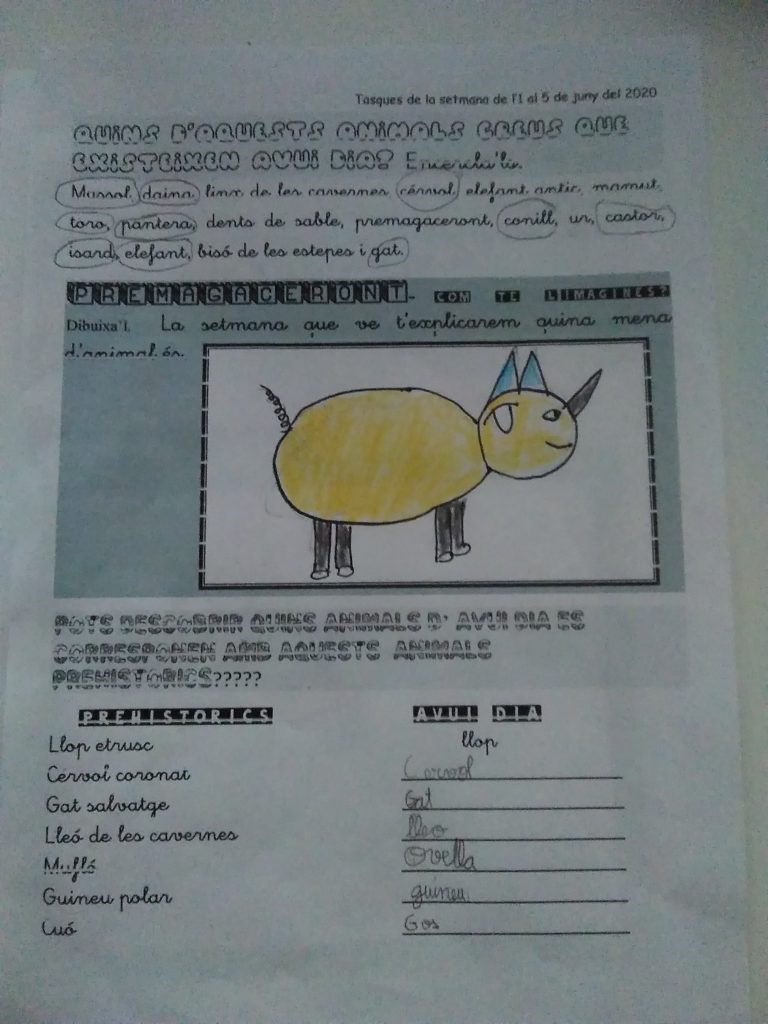 Tasques de la setmana de l'1 al 5 de juny del 2020
QUINS D'AQUESTS ANIMALS CREUS QUE
EXISTEIXEN AVUI DIA? Encercla'ls.
Mussol, daina, linx de les cavernes cérvol, elefant antic, mamut,
toro, pantera, dents de sable, premagaceront, conill, ur, castor,
isard, elefant, bisó de les estepes i gat.
PREMAGACERONT- COM TE L'IMAGINES?
Dibuixa'l. La setmana que ve t'explicarem quina mena
d'animal és.
POTS DESCOBRIR QUINS ANIMALS D' AVUI DIA ES
CORRESPONEN AMB AQUESTS ANIMALS
PREHISTORICS?????
PREHISTORICS AVUI DIA
Llop etrusc llop
Cérvol coronat Cervol
Gat salvatge Gat
Lleó de les cavernes lleo
Mufló Ovella
Guineu polar guineu
Cuó Gos